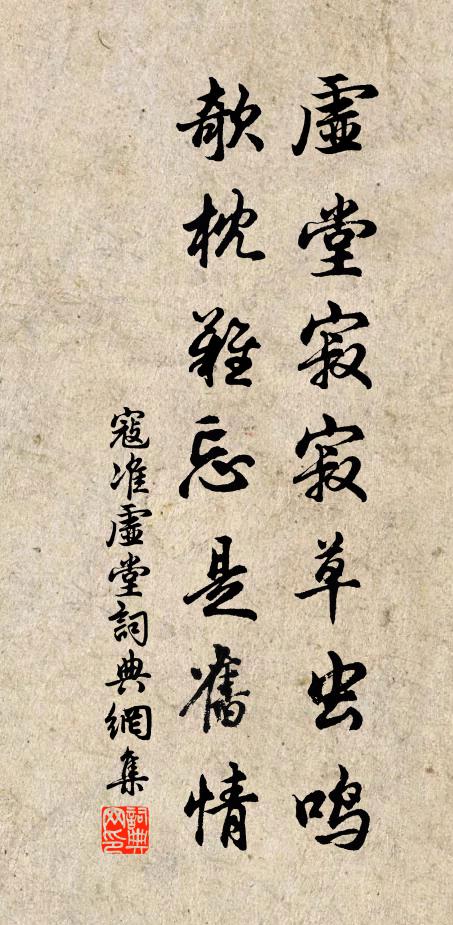 虚堂寂寂草虫鸣
欹枕难忘是旧情
寇准虚堂詞典網集
詞典
网印